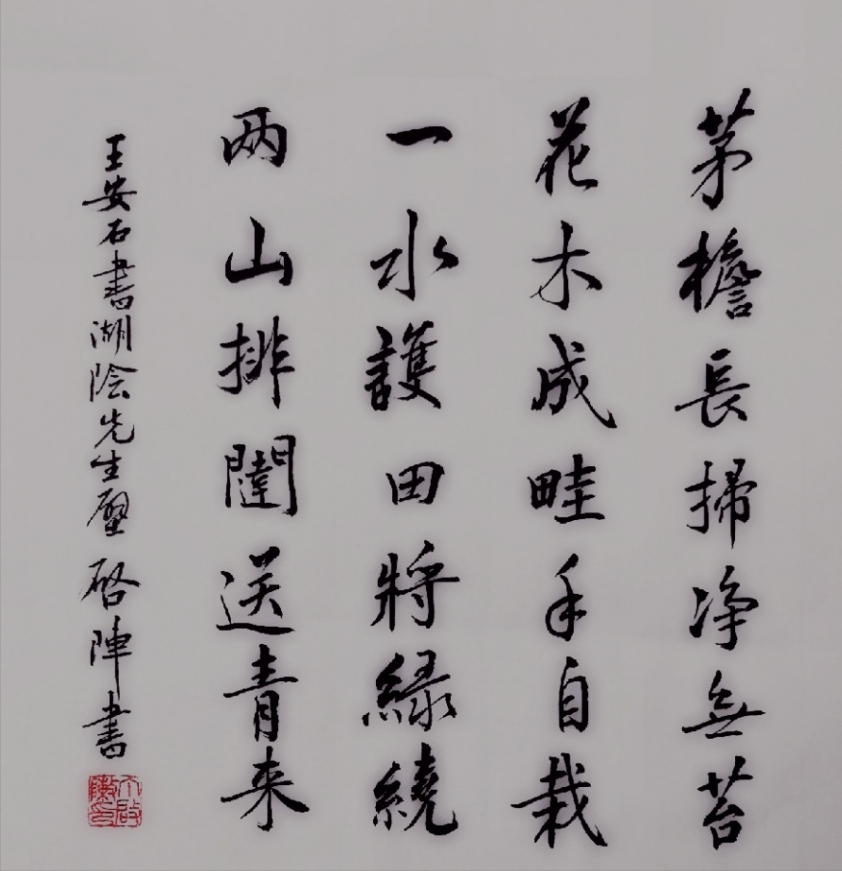 茅檐長掃净無苔
花木成畦手自栽
一水護田將緑繞
两山排闥送青来
王安石書湖陰先生壁 啓陣書